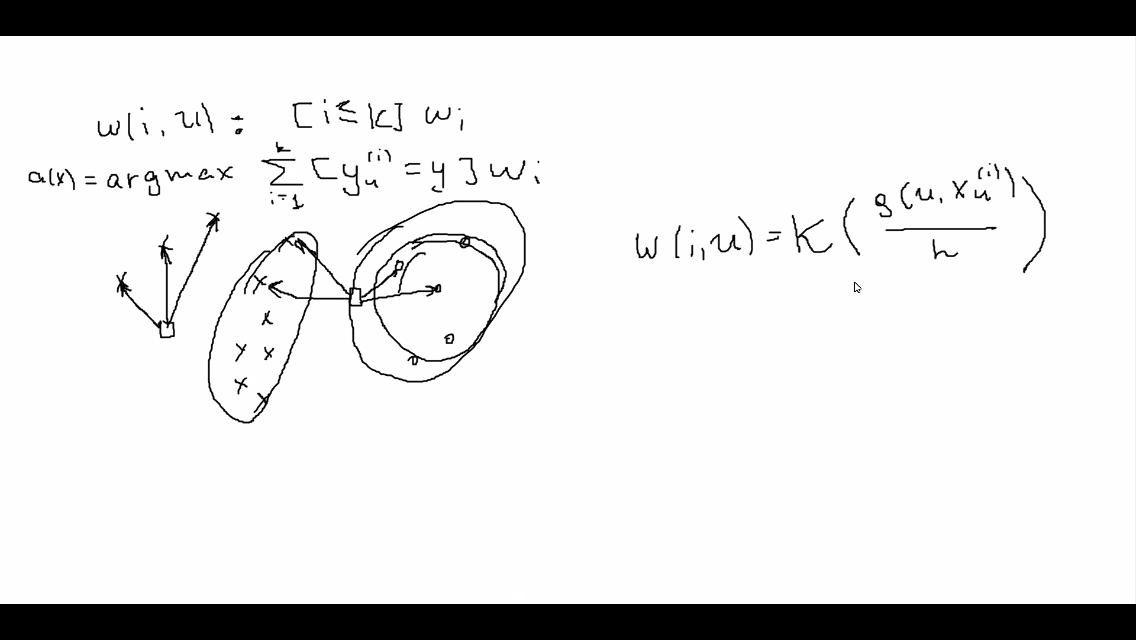 w(i, u) : [i ≤ k] w_i
a(x) = argmax ∑_{i=1}^{k} [y_u^{(i)} = y] w_i
w(i, u) = K(g(u, x_u^{(i)}) / h)